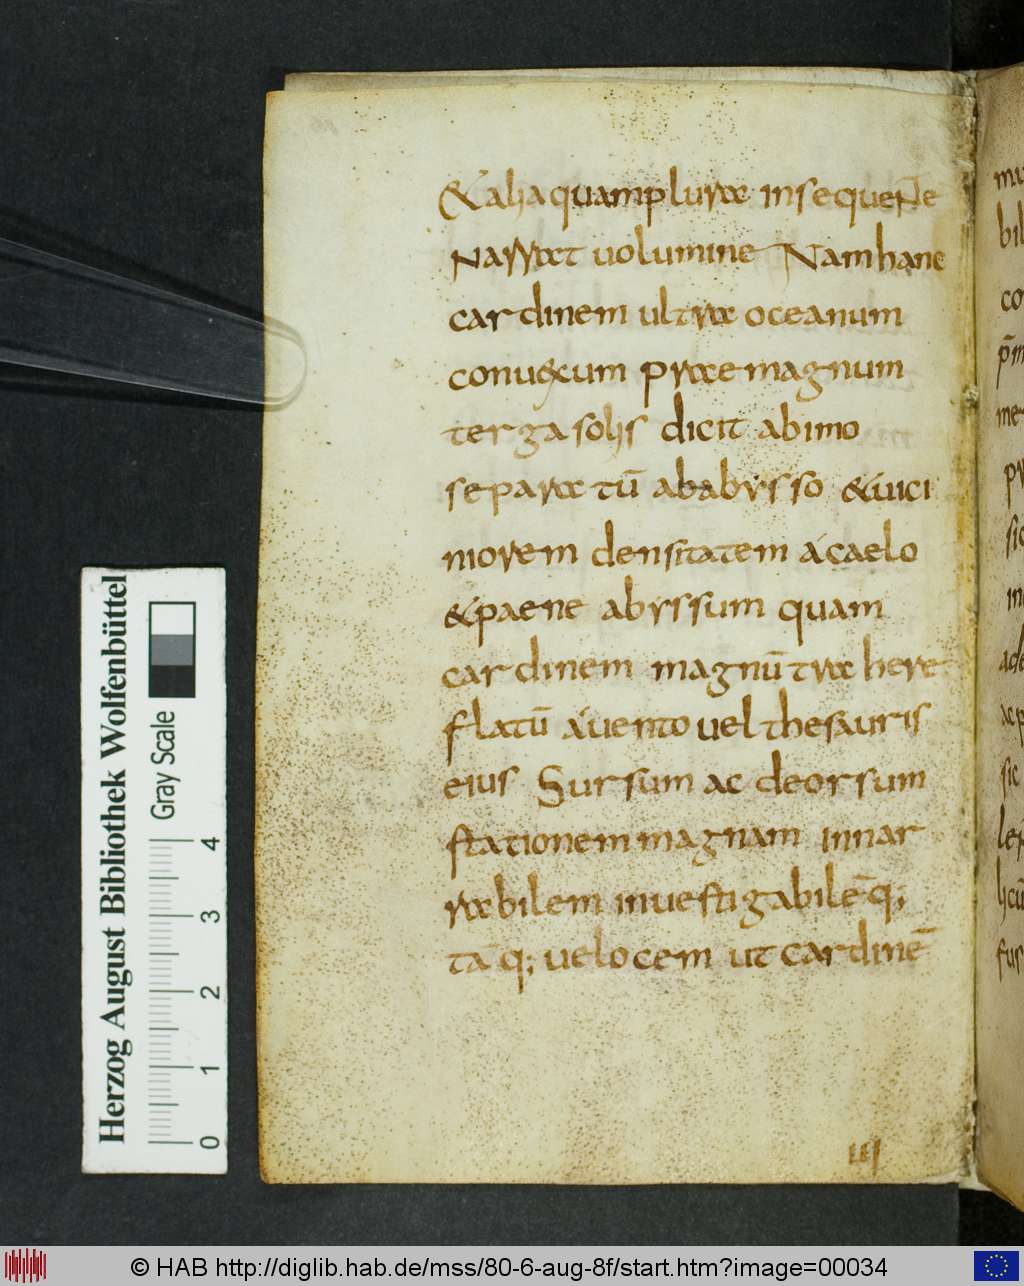 & alia quam plura in sequente
narrat uolumine Nam hanc
cardinem ultra oceanum
conu&cum prae magnum
terga solis dicit ab imo
separatū ab abysso & uici
niorem densitatem a caelo
& paene abyssum quam
cardinem magnū trahere
flatū a uento vel thesauris
eius Sursum ac deorsum
stationem magnam innar
rabilem inuestigabilē q;
tā q; uelocem ut cardinē
III
Herzog August Bibliothek Wolfenbüttel
Gray Scale
0 1 2 3 4
© HAB http://diglib.hab.de/mss/80-6-aug-8f/start.htm?image=00034